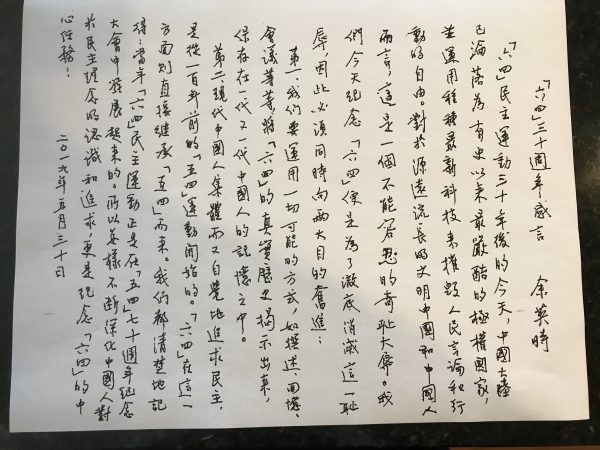 「六四」三十週年感言　余英時
「六四」民主運動三十年後的今天，中國大陸
已淪落為有史以來最嚴酷的極權國家，
並運用種種最新科技來摧毀人民言論和行
動的自由。對於源遠流長的文明中國和中國人
而言，這是一個不能容忍的奇恥大辱。我
們今天紀念「六四」便是為了澈底消滅這一恥
辱，因此必須同時向兩大目的奮進：
第一、我們要運用一切可能的方式，如撰述、回憶、
會議等等，將「六四」的真實歷史揭示出來，
保存在一代又一代中國人的記憶之中。
第二、現代中國人集體而又自覺地追求民主，
是從一百年前的「五四」運動開始的。「六四」在這一
方面則直接繼承「五四」而來。我們都清楚地記
得：當年「六四」民主運動正是在「五四」七十週年紀念
大會中發展起來的。所以怎樣不斷深化中國人對
於民主理念的認識和追求，更是紀念「六四」的中
心任務！
二〇一九年五月三十日